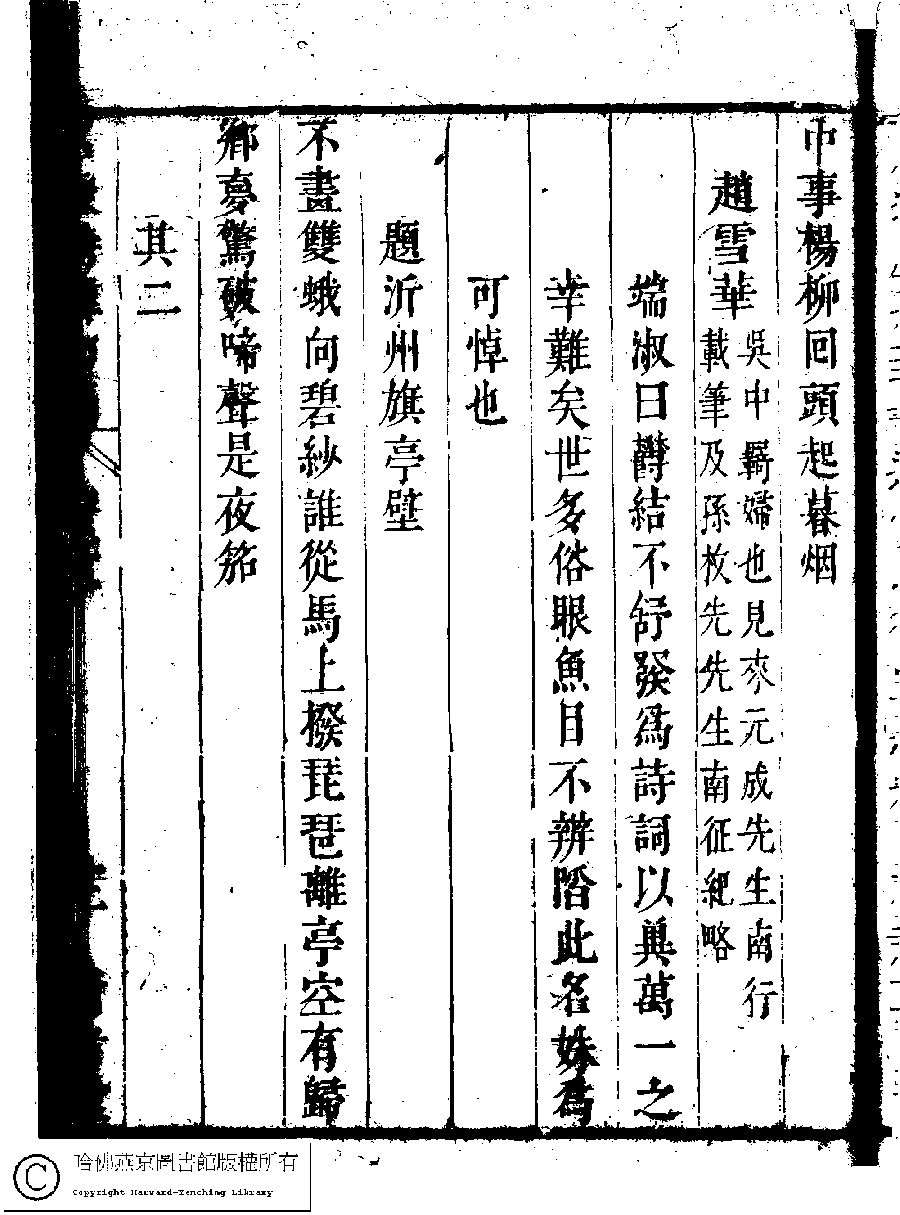 中事楊柳回頭起暮烟
趙雪華
吳中羇婦也見來元成先生南行
載筆及孫枚先先生南征紀略
端淑曰欝結不舒發爲詩詞以異萬一之
幸難矣世多俗眼魚目不辨陷此名姝爲
可悼也
題沂州旗亭壁
不畫雙蛾向碧紗誰從馬上撥琵琶離亭空有歸
鄉夢驚破啼聲是夜笳
其二
哈佛燕京圖書館版權所有
Copyright Harvard-Yenching Library